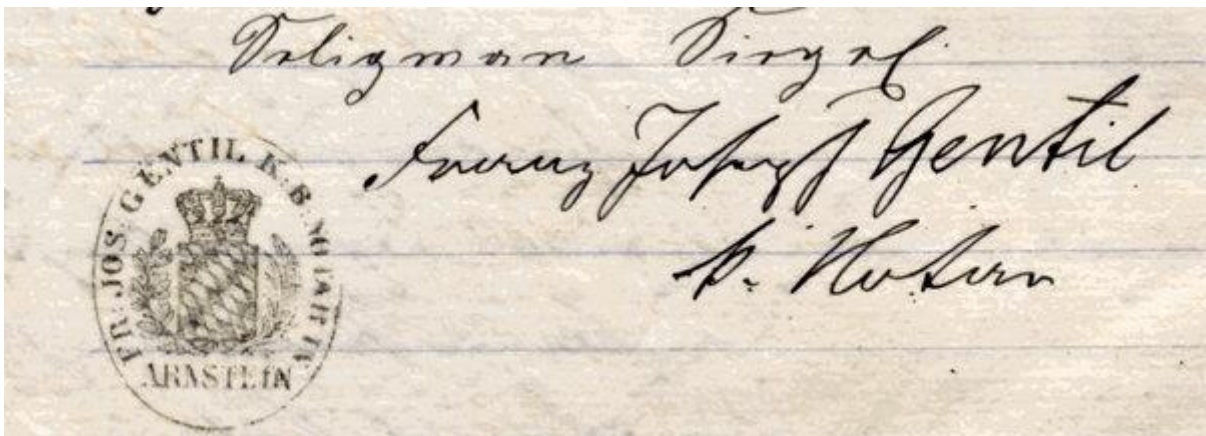 Seligman Siegel.
Franz Joseph Gentil
k. Notar
FR. JOS. GENTIL K. B. NOTAR IN
ARNSTEIN